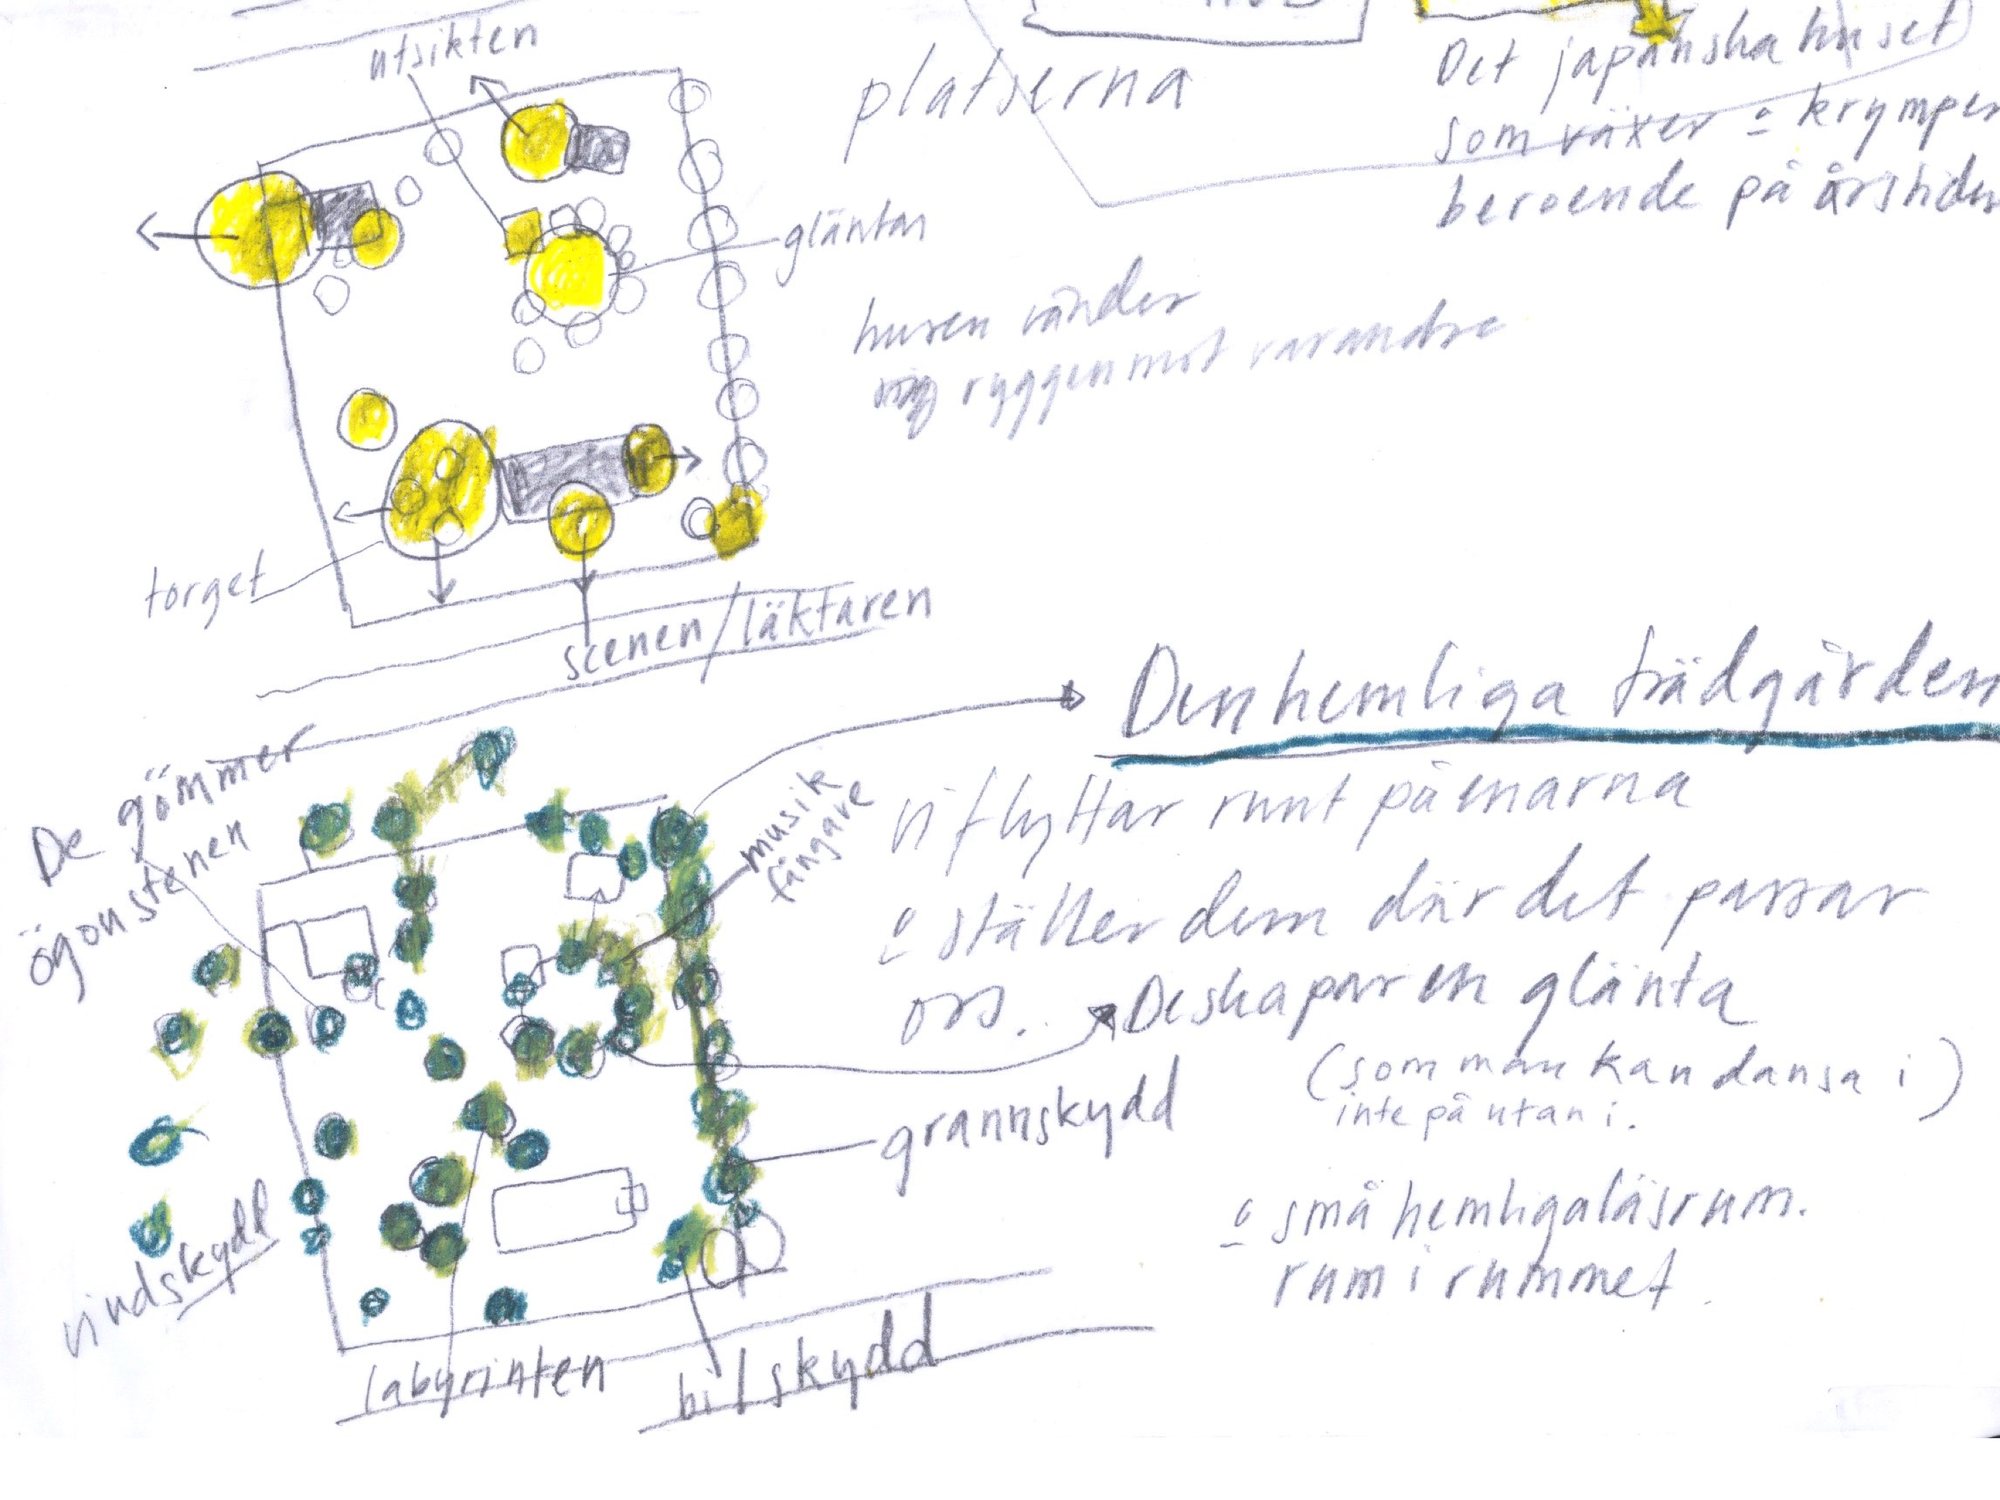 utsikten
platserna
Det japanska huset
som växer o krymper
beroende på årstiden
gläntan
husen vänder
sig ryggen mot varandra
torget
scenen/läktaren
Den hemliga trädgården
De gömmer
ögonstenen
musik
fångare
vi flyttar runt på enarna
o ställer dem där det passar
oss. De skapar en glänta
(som man kan dansa i)
inte på utan i.
grannskydd
o små hemliga läsrum.
rum i rummet.
vindskydd
labyrinten
bilskydd